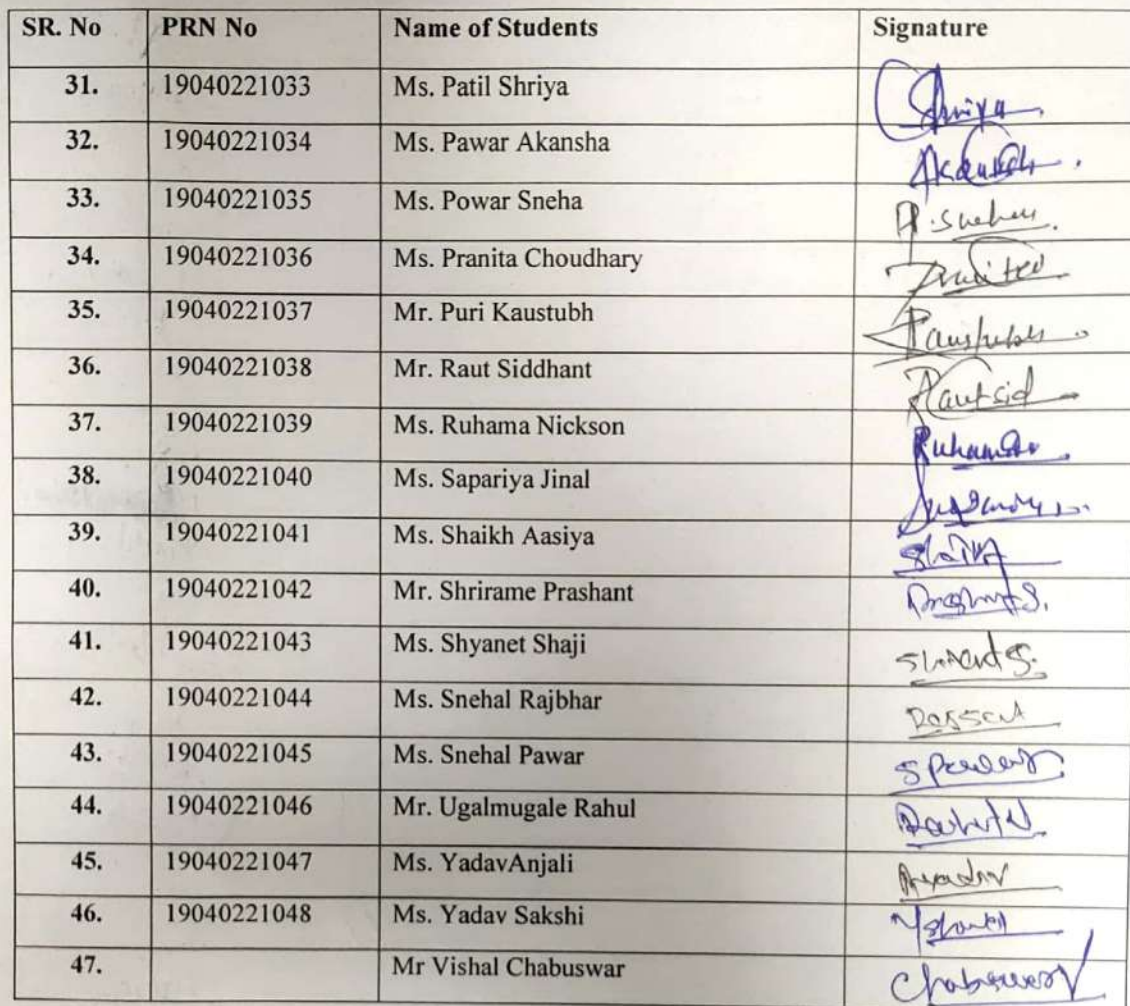 SR. No PRN No Name of Students Signature
31. 19040221033 Ms. Patil Shriya Shriya
32. 19040221034 Ms. Pawar Akansha
33. 19040221035 Ms. Powar Sneha P. Sneha
34. 19040221036 Ms. Pranita Choudhary
35. 19040221037 Mr. Puri Kaustubh
36. 19040221038 Mr. Raut Siddhant Rautsid
37. 19040221039 Ms. Ruhama Nickson
38. 19040221040 Ms. Sapariya Jinal
39. 19040221041 Ms. Shaikh Aasiya
40. 19040221042 Mr. Shrirame Prashant
41. 19040221043 Ms. Shyanet Shaji
42. 19040221044 Ms. Snehal Rajbhar
43. 19040221045 Ms. Snehal Pawar
44. 19040221046 Mr. Ugalmugale Rahul
45. 19040221047 Ms. YadavAnjali
46. 19040221048 Ms. Yadav Sakshi
47. Mr Vishal Chabuswar